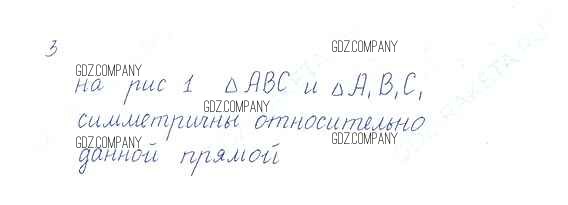 3
GDZ.COMPANY
GDZ.COMPANY
на рис 1 △ABC и △A₁B₁C₁
GDZ.COMPANY
симметричны относительно
GDZ.COMPANY
GDZ.COMPANY
данной прямой